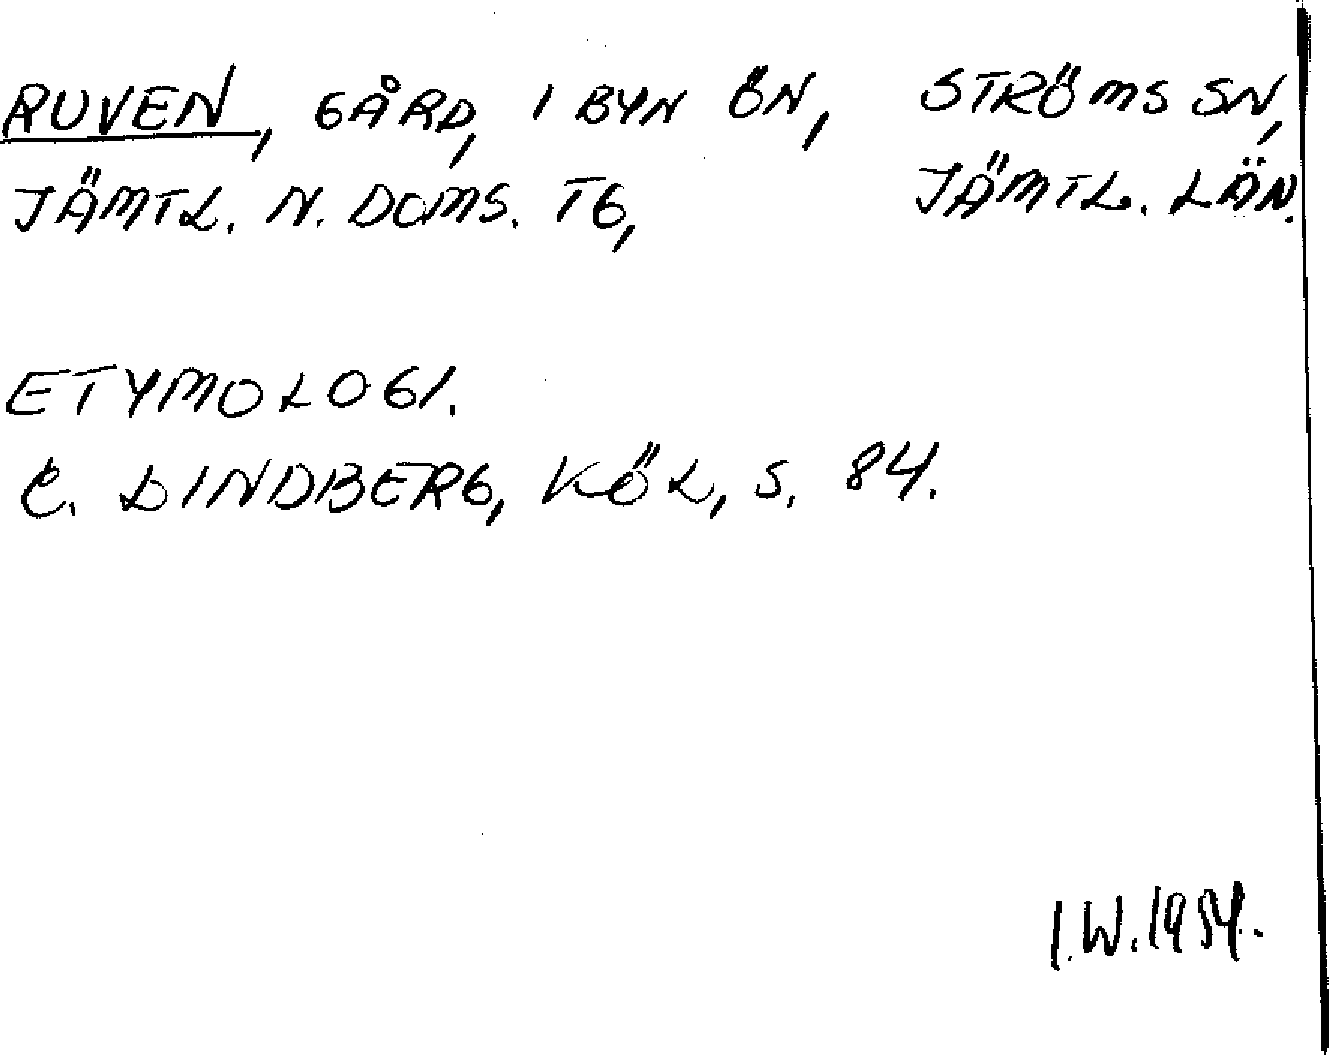 RUVEN, GÅRD, I BYN ÖN, STRÖMS SN,
JÄMTL. N. DOMS. TG, JÄMTL. LÄN.
ETYMOLOGI.
C. LINDBERG, KÖL, S. 84.
I.W. 1954.